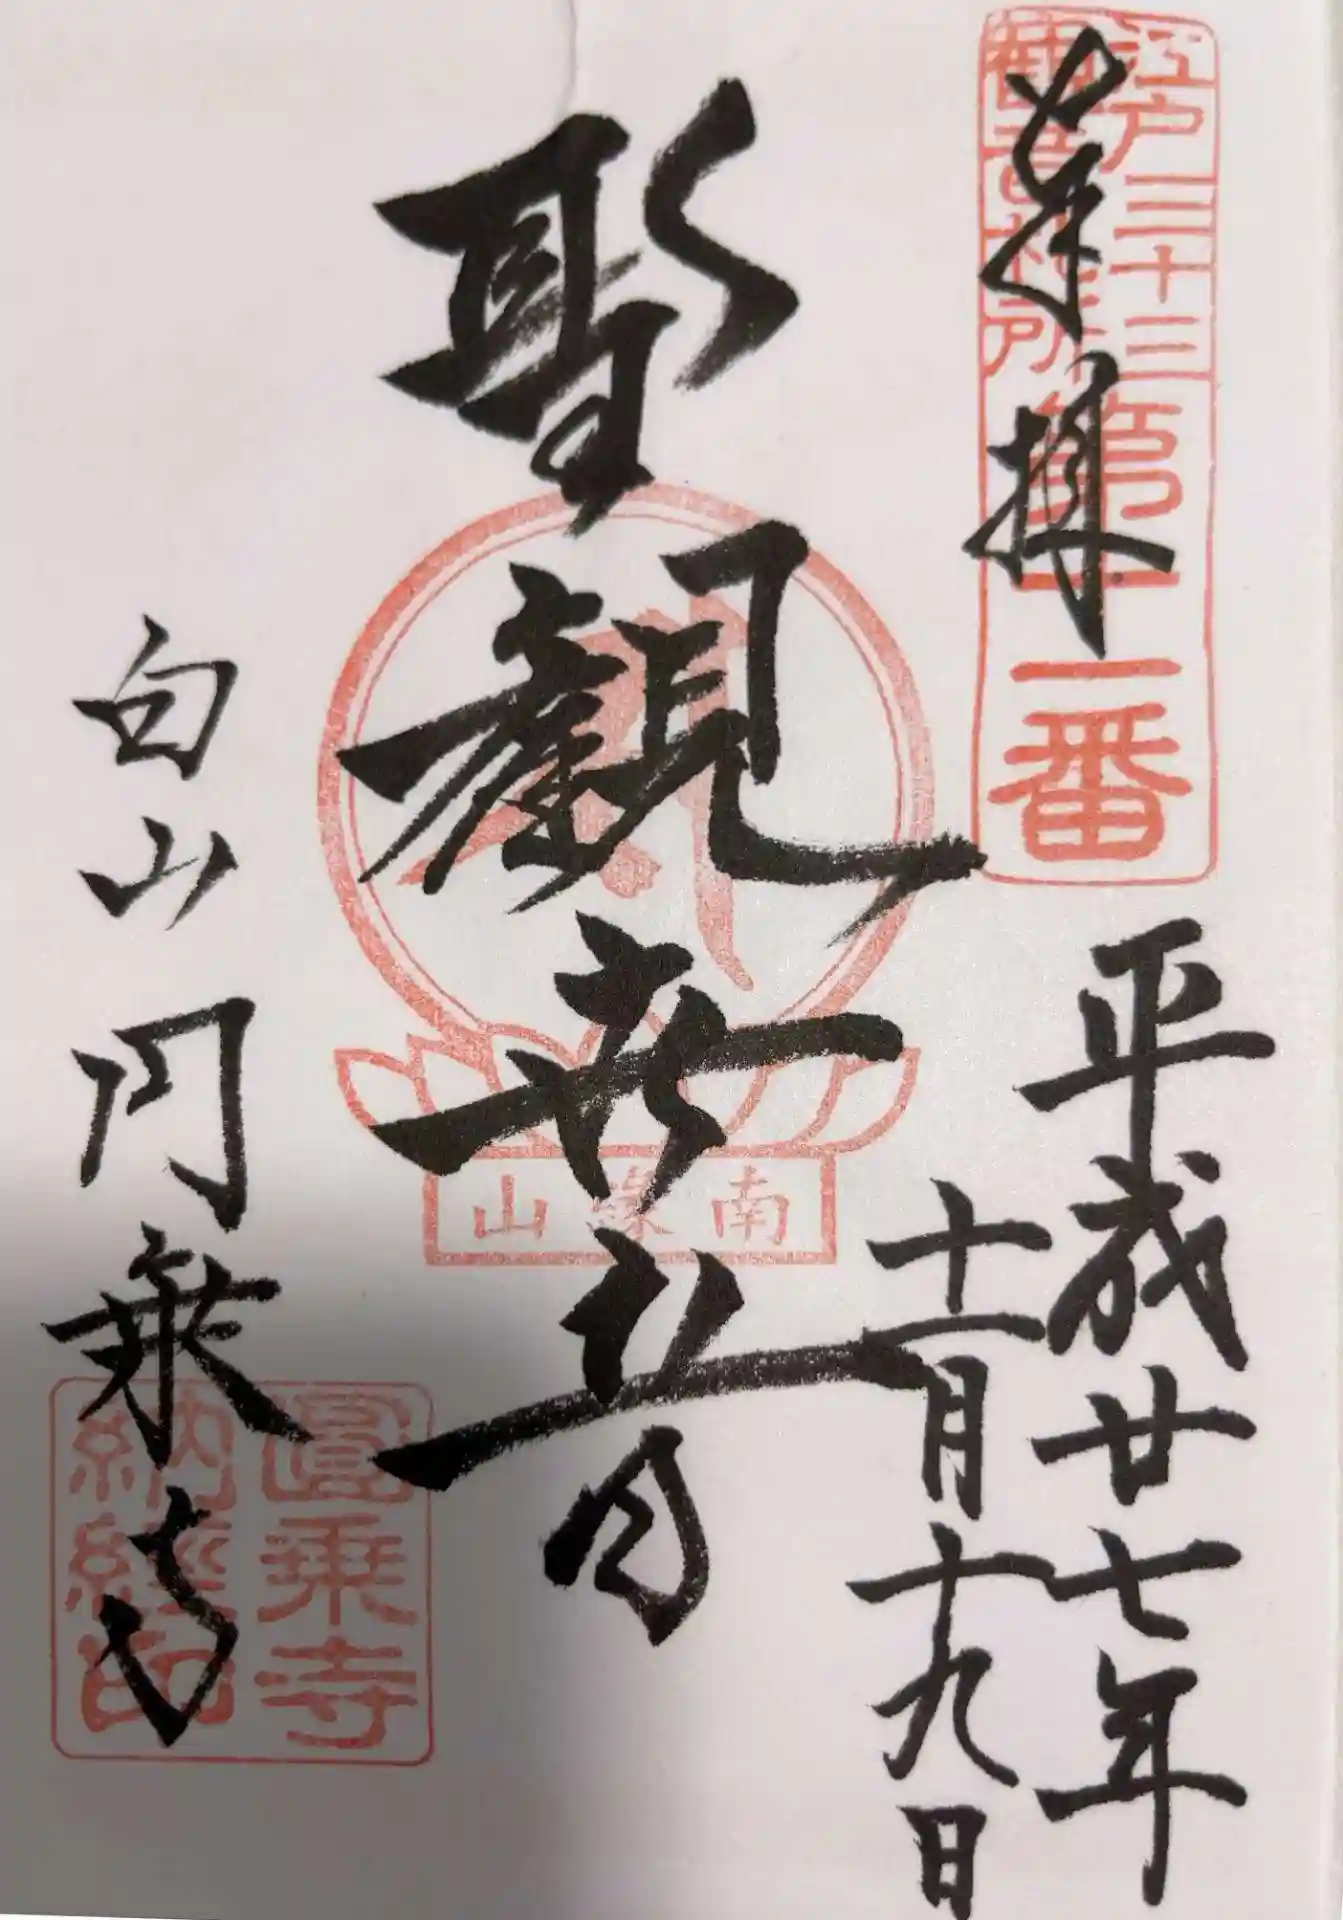 江戸三十三
観音札所
第十一番
奉拝
平成廿七年
十一月十九日
聖観世音
南縁山
白山 円乗寺
圓乗寺
納経印